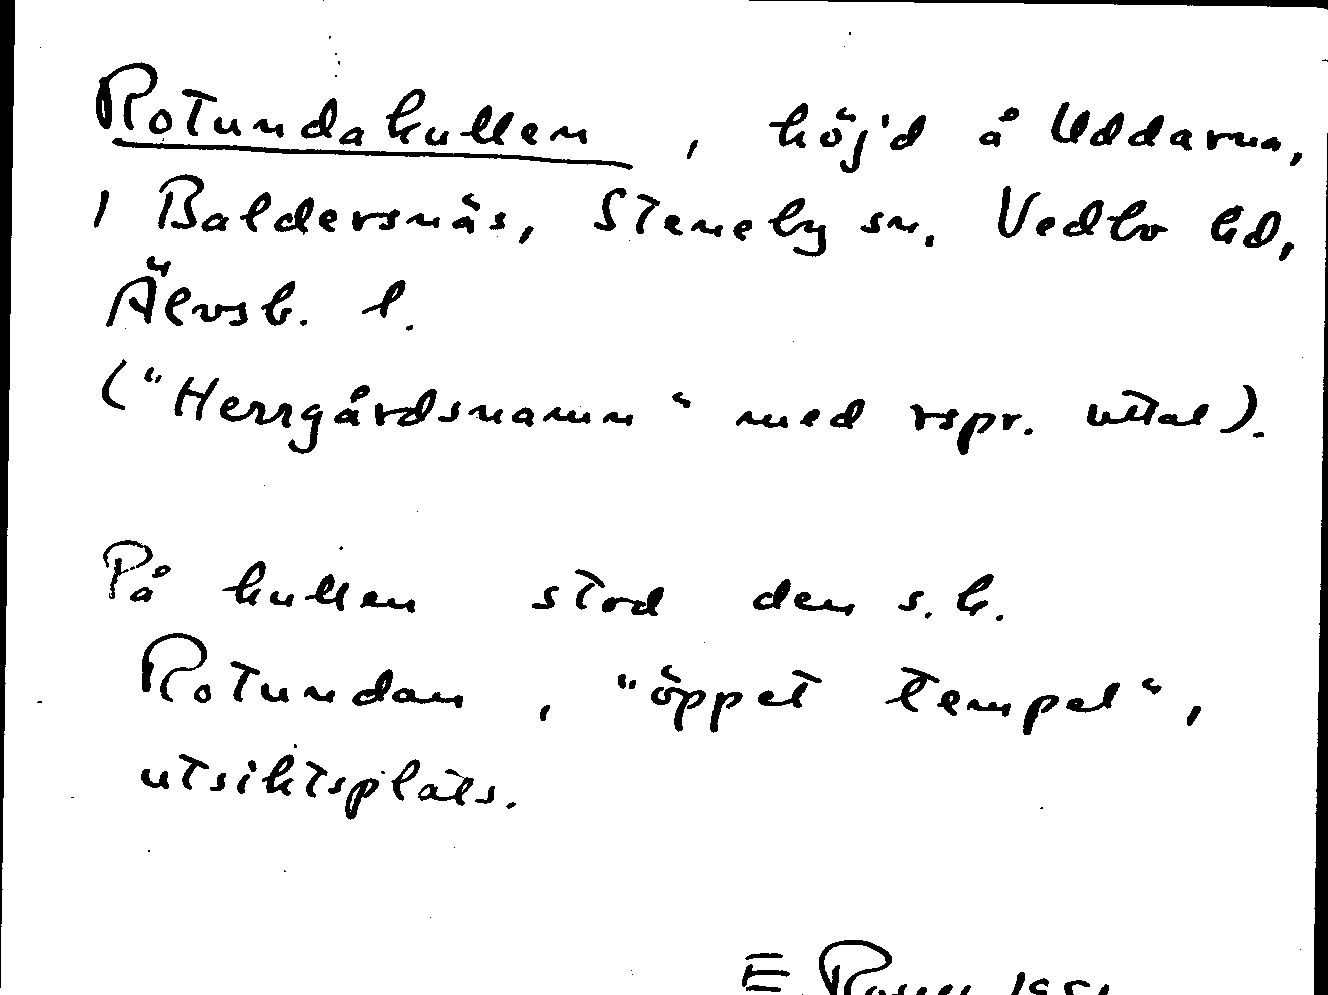 Rotundakullen, höjd å Uddarna,
1 Baldersnäs, Steneby sn. Vedbo hd,
Älvsb. l.
("Herrgårdsnamn" med rspr. uttal).
På kullen stod den s.k.
Rotundan, "öppet tempel",
utsiktsplats.
E.